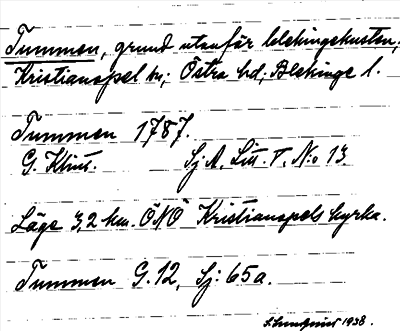 Tummen, grund utanför blekingekusten;
Kristianopel sn; Östra hd; Blekinge l.
Tummen 1787.
G. Klint. Sj. A. Litt. T. N:o 13
Läge 3,2 km. ÖNÖ Kristianopels kyrka.
Tummen G.12, Sj: 65a.
S. Lundquist 1938.